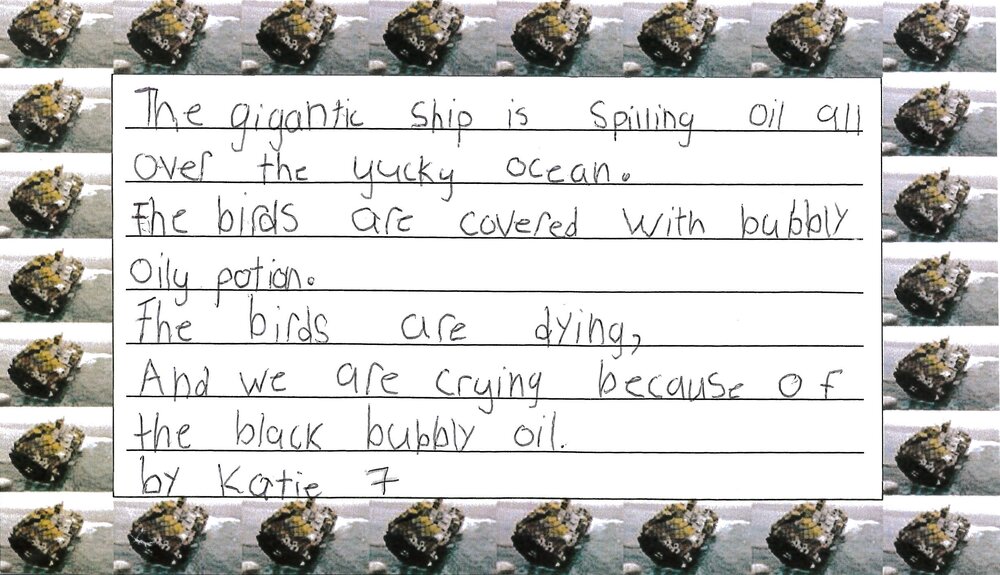 The gigantic ship is Spilling oil all
over the yucky ocean.
The birds are covered with bubbly
Oily potion.
The birds are dying,
And we are crying because of
the black bubbly oil.
by Katie 7